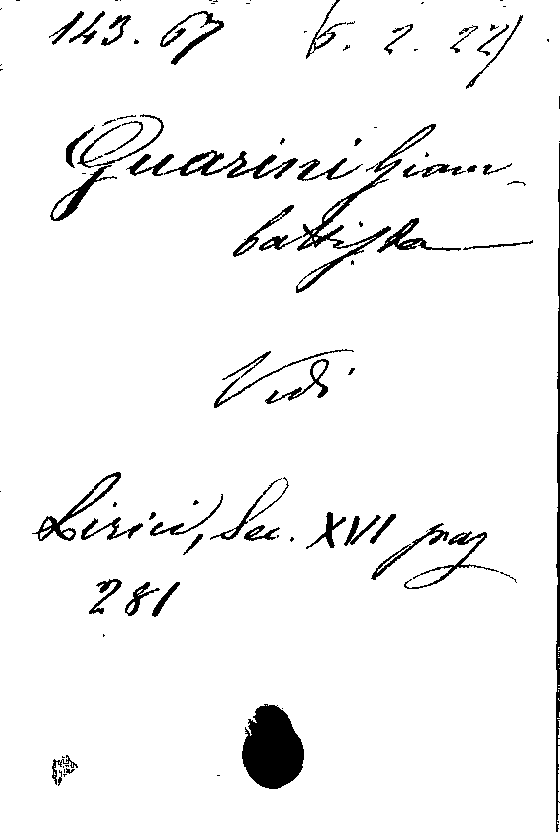 143. 67 (6. 2. 22)
Guarini Giam-
battista
Vedi
Lirici, Sec. XVI pag
281